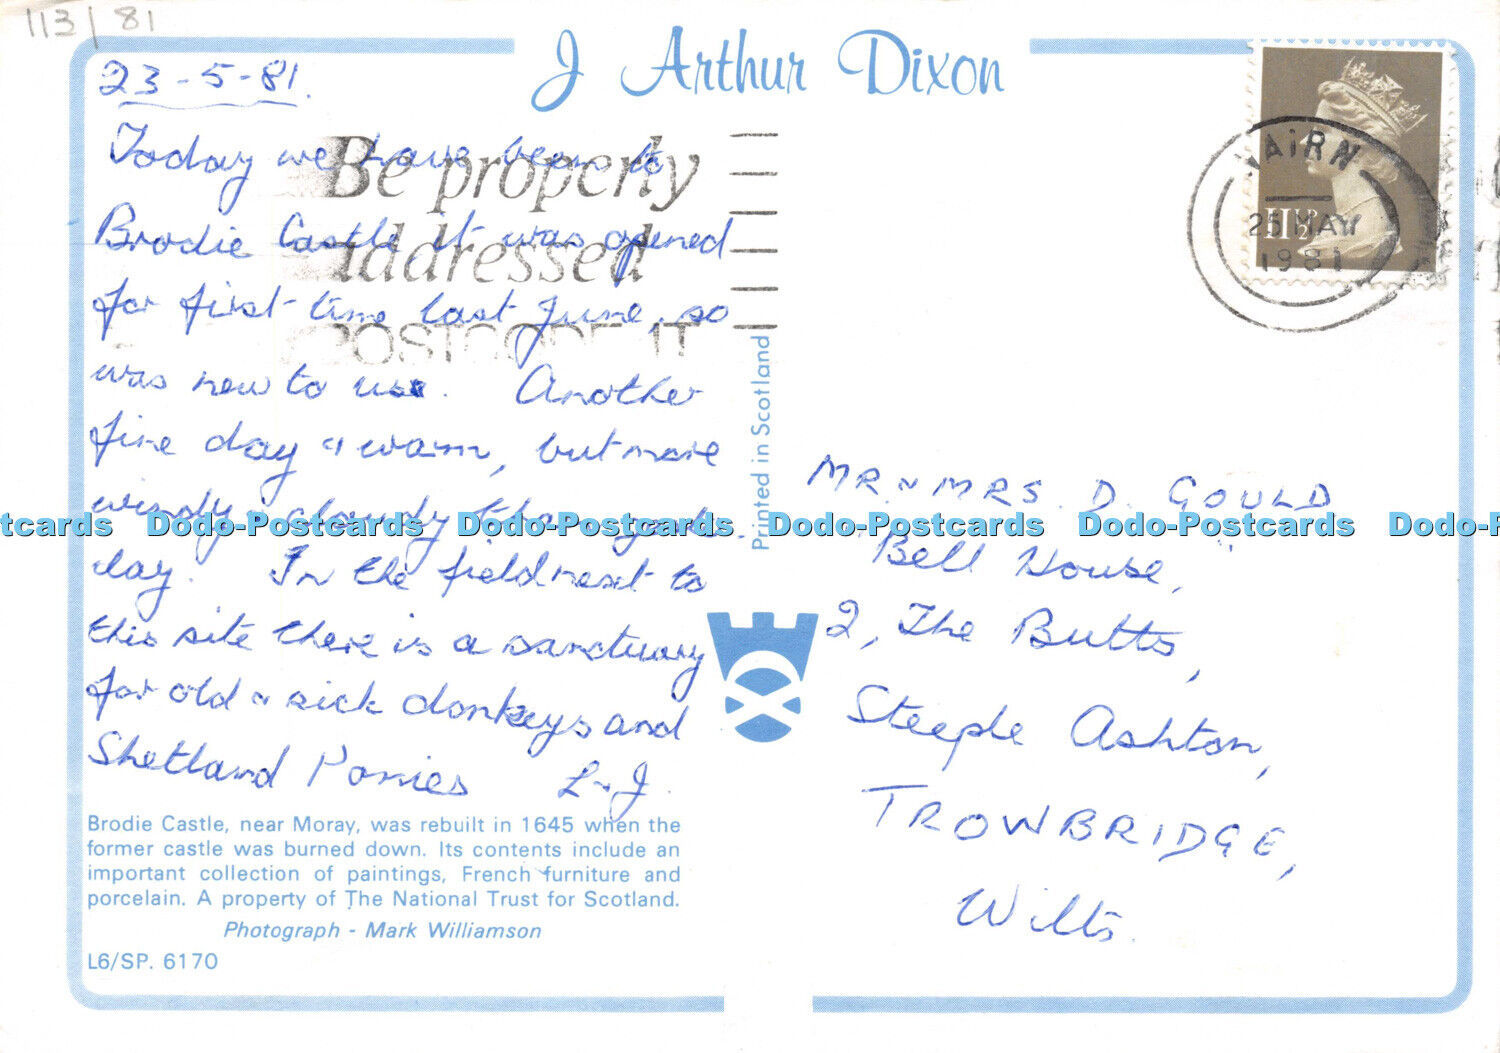 113/81
J Arthur Dixon
23-5-81.
Today we have been to
Brodie Castle, it was opened
for first time last June, so
was new to us. Another
fine day & warm, but more
windy & cloudy than yester-
day. In the field next to
this site there is a sanctuary
for old & sick donkeys and
Shetland Ponies L & J.
Be properly
addressed
POSTCODE IT
Brodie Castle, near Moray, was rebuilt in 1645 when the
former castle was burned down. Its contents include an
important collection of paintings, French furniture and
porcelain. A property of The National Trust for Scotland.
Photograph - Mark Williamson
L6/SP. 6170
Printed in Scotland
NAIRN
25 MAY
1981
11½
MR & MRS D. GOULD
"Bell House,"
2, The Butts,
Steeple Ashton,
TROWBRIDGE,
Wilts.
tcards Dodo-Postcards Dodo-Postcards Dodo-Postcards Dodo-Postcards Dodo-P